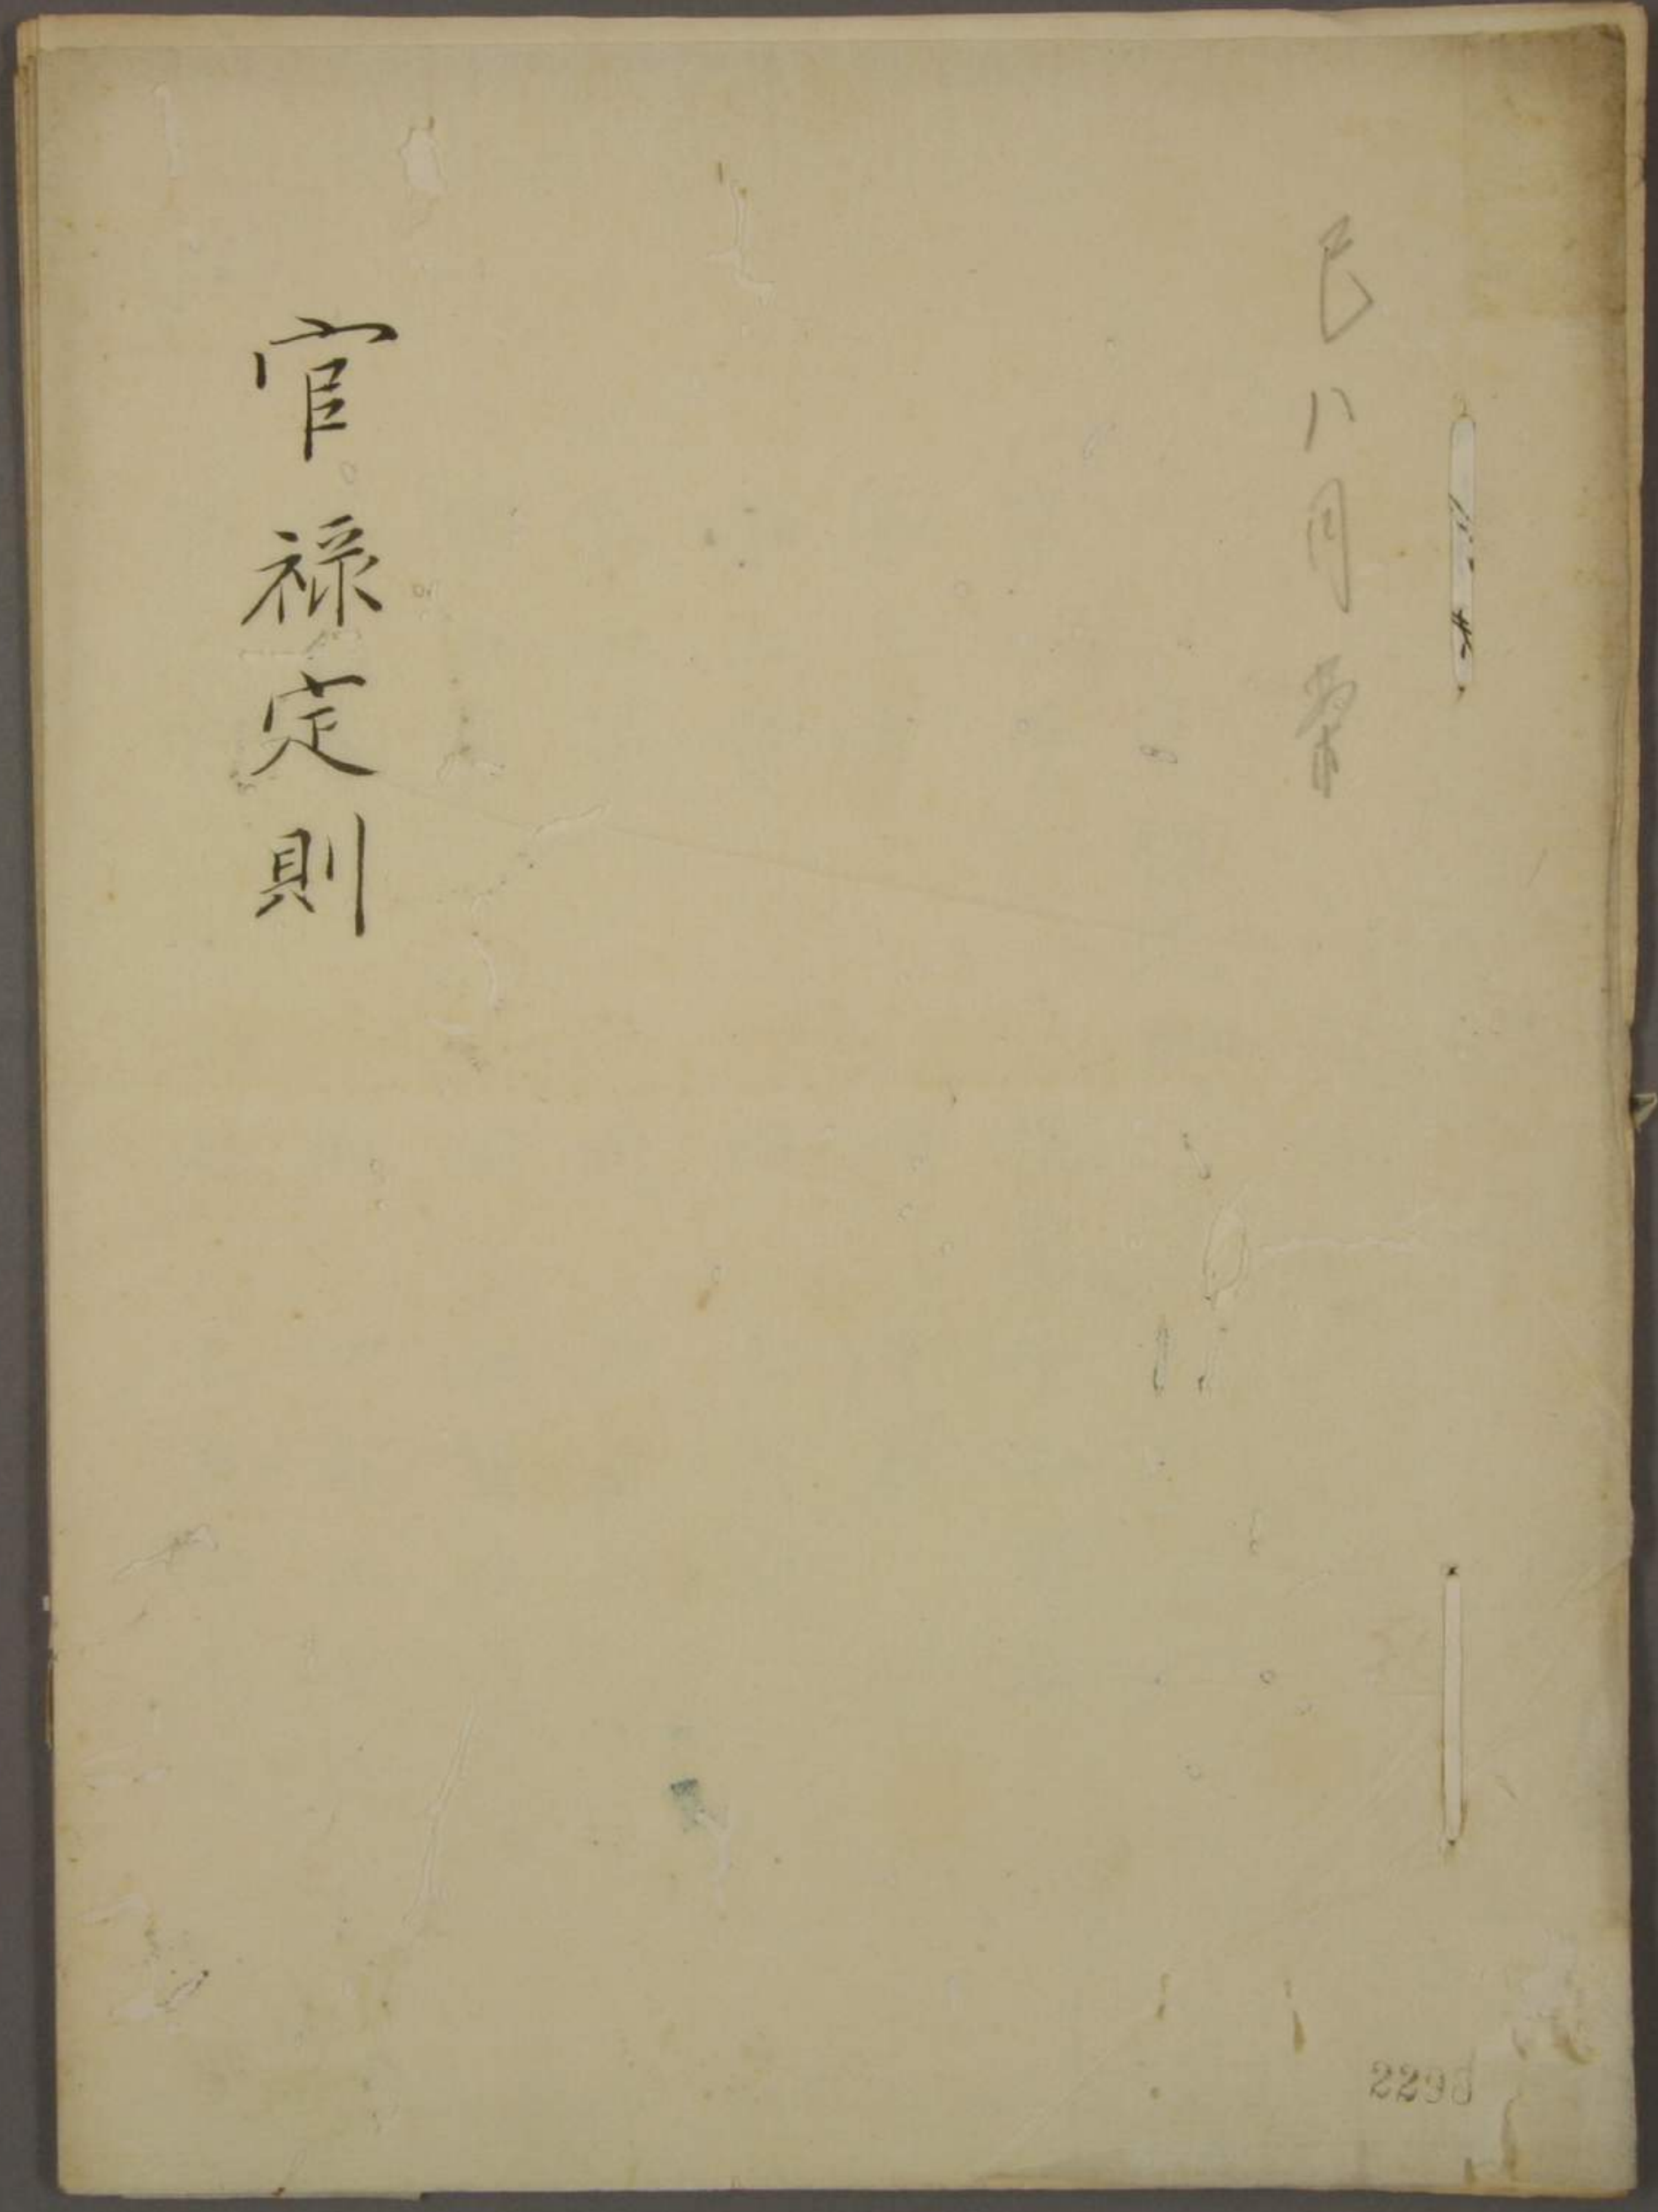 巳八月
官禄定則
2298